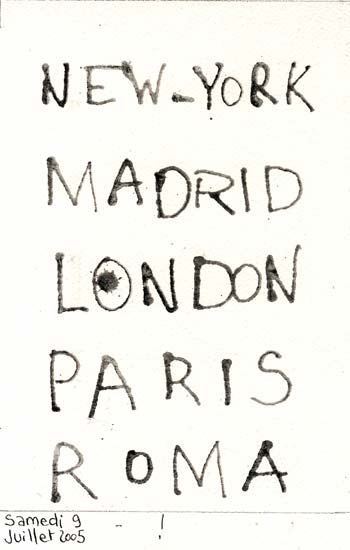 NEW-YORK
MADRID
LONDON
PARIS
ROMA
Samedi 9 - !
Juillet 2005